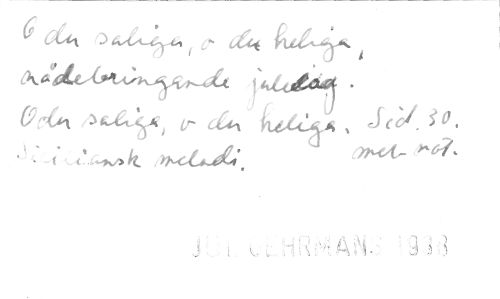 O du saliga, o du heliga,
nådebringande juledag.
O du saliga, o du heliga. Sid. 30.
Siciliansk melodi. met not.
JUL GEHRMANS 1938